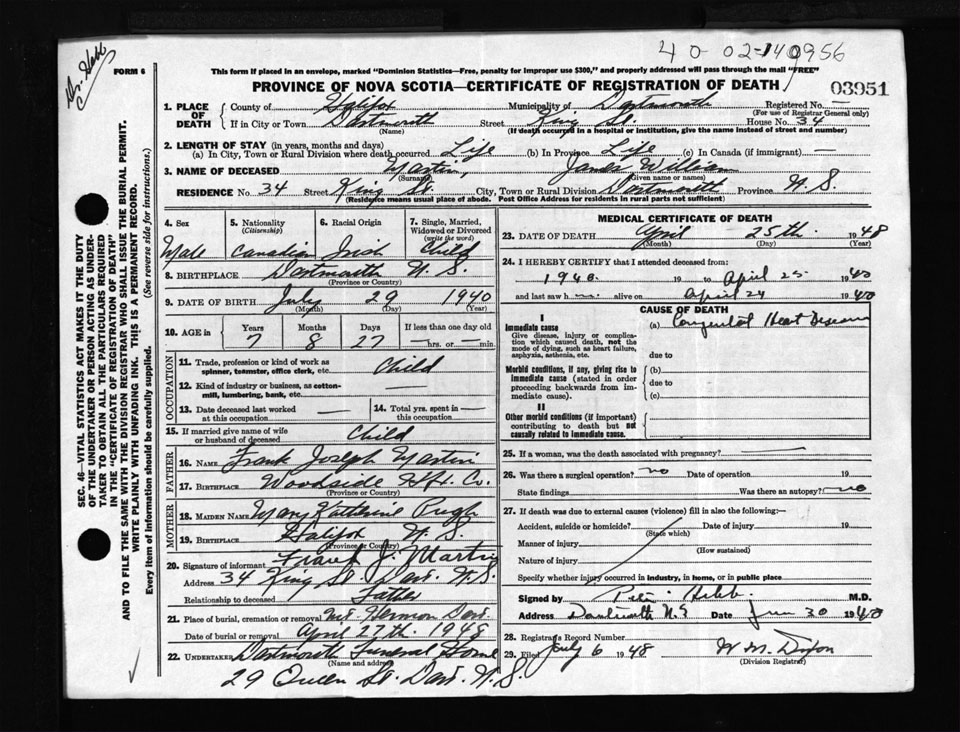 40-02-140956
Dr. Hebb
FORM 6
This form if placed in an envelope, marked "Dominion Statistics—Free, penalty for improper use $300," and properly addressed will pass through the mail "FREE"
PROVINCE OF NOVA SCOTIA—CERTIFICATE OF REGISTRATION OF DEATH
03951
1. PLACE OF DEATH
County of Halifax Municipality of Dartmouth Registered No. —
(For use of Registrar General only)
If in City or Town Dartmouth Street King St. House No. 34
(Name) (If death occurred in a hospital or institution, give the name instead of street and number)
2. LENGTH OF STAY (in years, months and days)
(a) In City, Town or Rural Division where death occurred Life (b) In Province Life (c) In Canada (if immigrant) —
3. NAME OF DECEASED Martin, James William
(Surname) (Given name or names)
RESIDENCE No. 34 Street King St. City, Town or Rural Division Dartmouth Province N.S.
(Residence means usual place of abode. Post Office Address for residents in rural parts not sufficient)
4. Sex
Male
5. Nationality
(Citizenship)
Canadian
6. Racial Origin
Irish
7. Single, Married, Widowed or Divorced
(write the word)
Child
8. BIRTHPLACE Dartmouth N.S.
(Province or Country)
9. DATE OF BIRTH July 29 1940
(Month) (Day) (Year)
10. AGE in
Years Months Days If less than one day old
7 8 27 —hrs. or —min.
OCCUPATION
11. Trade, profession or kind of work as spinner, teamster, office clerk, etc. Child
12. Kind of industry or business, as cotton-mill, lumbering, bank, etc. —
13. Date deceased last worked at this occupation —
14. Total yrs. spent in this occupation —
15. If married give name of wife or husband of deceased Child
FATHER
16. NAME Frank Joseph Martin
17. BIRTHPLACE Woodside Hfx. Co.
(Province or Country)
MOTHER
18. MAIDEN NAME Mary Katherine Pugh
19. BIRTHPLACE Halifax N.S.
(Province or Country)
20. Signature of informant J. Martin
Address 34 King St. Dart. N.S.
Relationship to deceased Father
21. Place of burial, cremation or removal Mt. Hermon Dart.
Date of burial or removal April 27th. 1948
22. UNDERTAKER Dartmouth Funeral Home
(Name and address)
29 Queen St. Dart. N.S.
MEDICAL CERTIFICATE OF DEATH
23. DATE OF DEATH April 25th. 1948
(Month) (Day) (Year)
24. I HEREBY CERTIFY that I attended deceased from:
1940. 19 to April 25 1940
and last saw h m. alive on April 24 1940
CAUSE OF DEATH
I
Immediate cause
Give disease, injury or complication which caused death, not the mode of dying, such as heart failure, asphyxia, asthenia, etc.
(a) Congenital Heart Disease
due to
Morbid conditions, if any, giving rise to immediate cause (stated in order proceeding backwards from immediate cause).
(b)
due to
(c)
II
Other morbid conditions (if important) contributing to death but not causally related to immediate cause.
25. If a woman, was the death associated with pregnancy? —
26. Was there a surgical operation? no Date of operation 19
State findings Was there an autopsy? no
27. If death was due to external causes (violence) fill in also the following:—
Accident, suicide or homicide? Date of injury 19
(State which)
Manner of injury
(How sustained)
Nature of injury
Specify whether injury occurred in industry, in home, or in public place
Signed by Hebb M.D.
Address Dartmouth N.S. Date Jun 30 1940
28. Registrars Record Number
29. Filed July 6 1948 W M. Dixon
(Division Registrar)
SEC. 46—VITAL STATISTICS ACT MAKES IT THE DUTY OF THE UNDERTAKER OR PERSON ACTING AS UNDERTAKER TO OBTAIN ALL THE PARTICULARS REQUIRED IN THE "CERTIFICATE OF REGISTRATION OF DEATH" AND TO FILE THE SAME WITH THE DIVISION REGISTRAR WHO SHALL ISSUE THE BURIAL PERMIT.
WRITE PLAINLY WITH UNFADING INK. THIS IS A PERMANENT RECORD.
Every item of information should be carefully supplied. (See reverse side for instructions.)